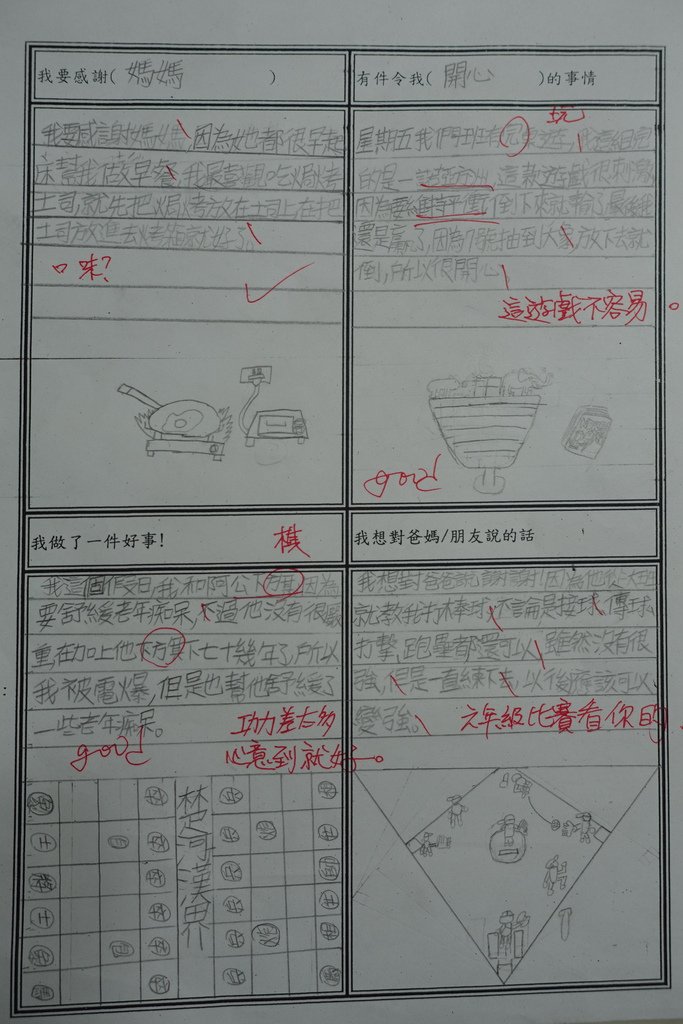 我要感謝( 媽媽 )
我要感謝媽媽,因為她都很早起
床幫我做早餐,我最喜歡吃焗烤
土司,就先把焗烤放在土司上在把
土司放進去烤箱就好了。
口味?
有件令我( 開心 )的事情
玩
星期五我們班有玩桌遊,我這組玩
的是一
這款遊戲很刺激
因為要維持平衡倒下來就輸了最後我
還是贏了,因為
抽到大象放下去就
倒,所以很開心。
這遊戲不容易。
good
我做了一件好事!
棋
我這個假日,我和阿公下
因為
要舒緩老年痴呆,不過他沒有很嚴
重,在加上他下
下七十幾年了,所以
我被電爆,但是也幫他舒緩了
一些老年痴呆。
功力差太多
good
心意到就好。
楚河漢界
我想對爸媽/朋友說的話
我想對爸爸說謝謝!因為他從
就教我打棒球,不論是接球、傳球、
打擊,跑壘都還可以,雖然沒有很
強,但是一直練下去,以後應該可以
變強。
六年級比賽看你的